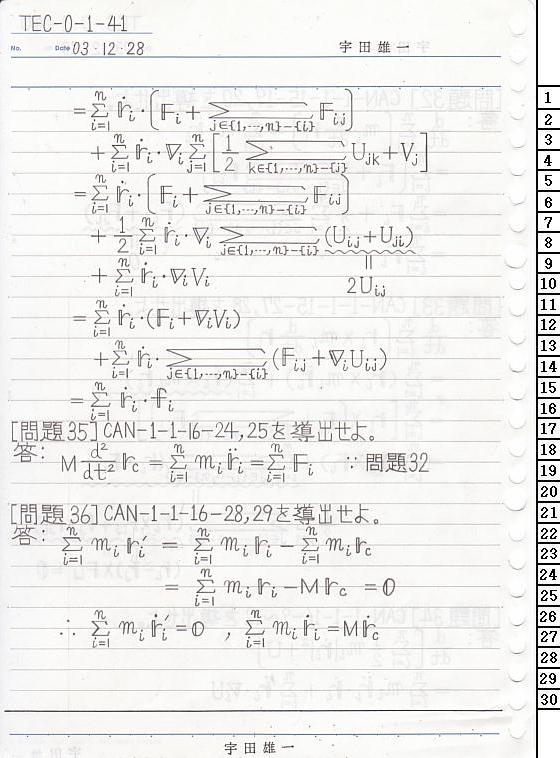 TEC-0-1-41
No. Date 03・12・28 宇田雄一
= Σ_{i=1}^{n} ṙ_i・(F_i + Σ_{j∈{1,…,n}-{i}} F_{ij})
+ Σ_{i=1}^{n} ṙ_i・∇_i Σ_{j=1}^{n} [1/2 Σ_{k∈{1,…,n}-{j}} U_{jk} + V_j]
= Σ_{i=1}^{n} ṙ_i・(F_i + Σ_{j∈{1,…,n}-{i}} F_{ij})
+ 1/2 Σ_{i=1}^{n} ṙ_i・∇_i Σ_{j∈{1,…,n}-{i}} (U_{ij} + U_{ji})
+ Σ_{i=1}^{n} ṙ_i・∇_i V_i
||
2U_{ij}
= Σ_{i=1}^{n} ṙ_i・(F_i + ∇_i V_i)
+ Σ_{i=1}^{n} ṙ_i・Σ_{j∈{1,…,n}-{i}} (F_{ij} + ∇_i U_{ij})
= Σ_{i=1}^{n} ṙ_i・f_i
[問題35] CAN-1-1-16-24,25を導出せよ。
答: M d²/dt² r_c = Σ_{i=1}^{n} m_i r̈_i = Σ_{i=1}^{n} F_i ∵ 問題32
[問題36] CAN-1-1-16-28,29を導出せよ。
答: Σ_{i=1}^{n} m_i r_i′ = Σ_{i=1}^{n} m_i r_i - Σ_{i=1}^{n} m_i r_c
= Σ_{i=1}^{n} m_i r_i - M r_c = 0
∴ Σ_{i=1}^{n} m_i ṙ_i′ = 0 , Σ_{i=1}^{n} m_i ṙ_i = M ṙ_c
宇田雄一
1
2
3
4
5
6
7
8
9
10
11
12
13
14
15
16
17
18
19
20
21
22
23
24
25
26
27
28
29
30